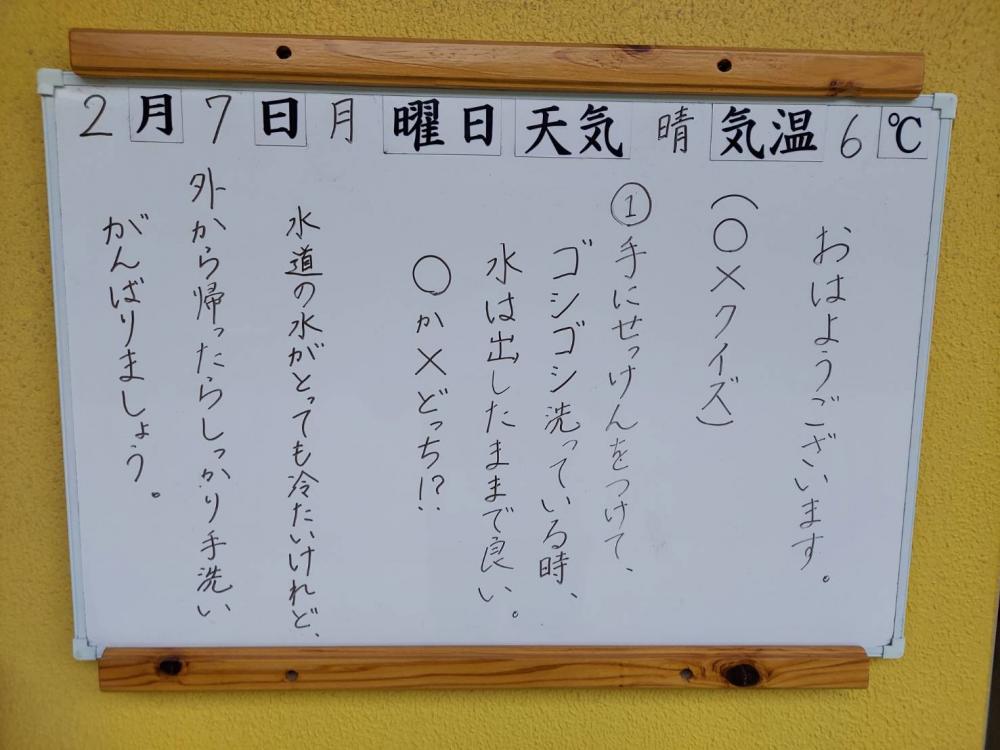 2月7日月曜日天気晴気温6℃
おはようございます。
(〇×クイズ)
①手にせっけんをつけて、
ゴシゴシ洗っている時、
水は出したままで良い。
〇か×どっち!?
水道の水がとっても冷たいけれど、
外から帰ったらしっかり手洗い
がんばりましょう。